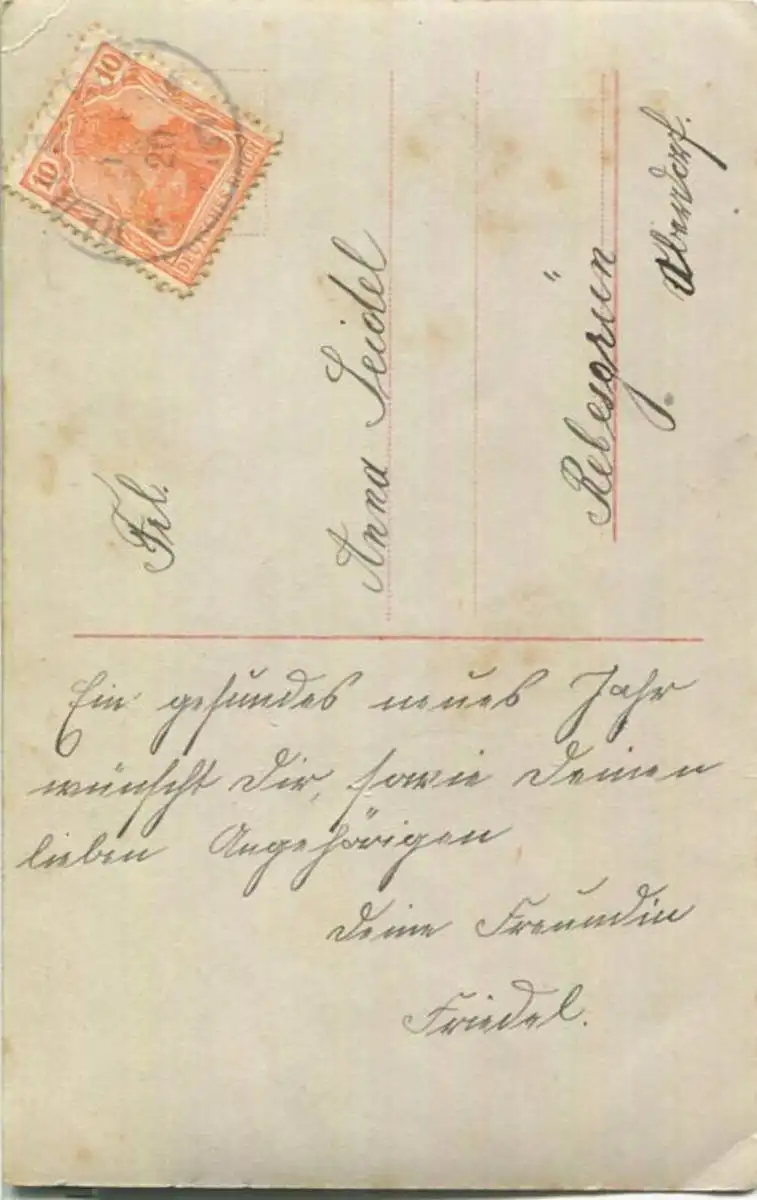 10
10
DEUTSCHES REICH
20
Frl.
Anna Seidel
Rebesgrün
Oberdorf.
Ein gesundes neues Jahr
wünscht Dir, sowie Deinen
lieben Angehörigen
Deine Freundin
Friedel.